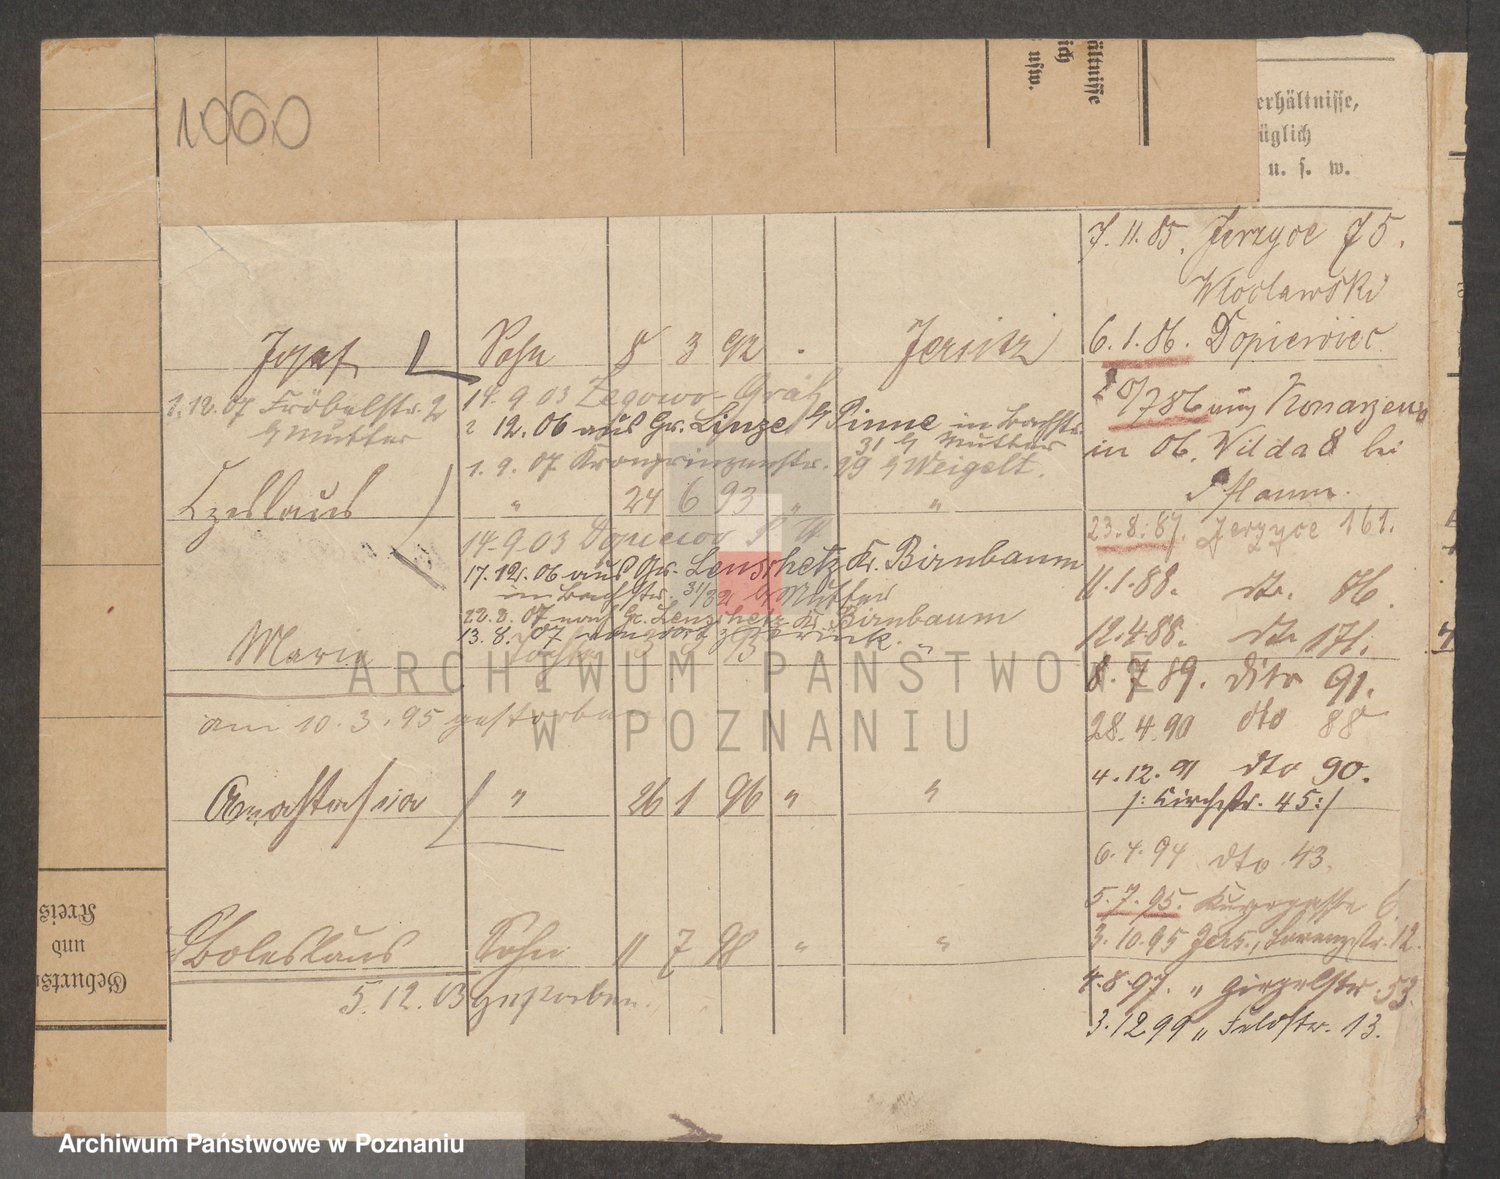 1060
ältnisse
ich
usw.
erhältnisse,
üglich
u. s. w.
7. 11. 85. Jerzyce 75.
Wloclawski
Josef Sohn 8 3 92 . Jersitz
6. 1. 86. Dopiewiec
2.12.07 Fröbelstr. 2
b/ Mutter
14.9.03 Zegowo - Grätz
2 12.06 aus Gr. Linze b/ Pinne in Bachstr.
31 b/ Mutter
1. 9. 07 Kronprinzenstr. 99 b/ Weigelt.
7 86 aus Konarzewo
in 06. Wilda 8 bei
Pflaum.
Czeslaus " 24 6 93 " "
14.9.03 Dopiewo P. W
17.12.06 aus Gr. Lenschetz Kr. Birnbaum
in Bachstr. 31/32 b/ Mutter
22.3.07 nach Gr. Lenschetz Kr. Birnbaum
13.8.07 von dort zurück.
23.8.87. Jerzyce 161.
11.1.88. dto. 86.
12.4.88. dto 171.
Maria Tochter
8.7.89. dito 91.
am 10.3.95 gestorben
28.4.90 dto 88
4.12.91 dto 90.
/: Kirchstr. 45:/
Anastasia " 26 1 96 " "
6.4.94 dto 43.
5.7.95.
3.10.95 Jers., Lorenzstr. 12.
Boleslaus Sohn 11 7 98 " "
5.12.03 gestorben.
4.8.97. "
3.12 99 " Feldstr. 13.
Geburts
und
Kreis
ARCHIWUM PAŃSTWOWE
W POZNANIU
Archiwum Państwowe w Poznaniu